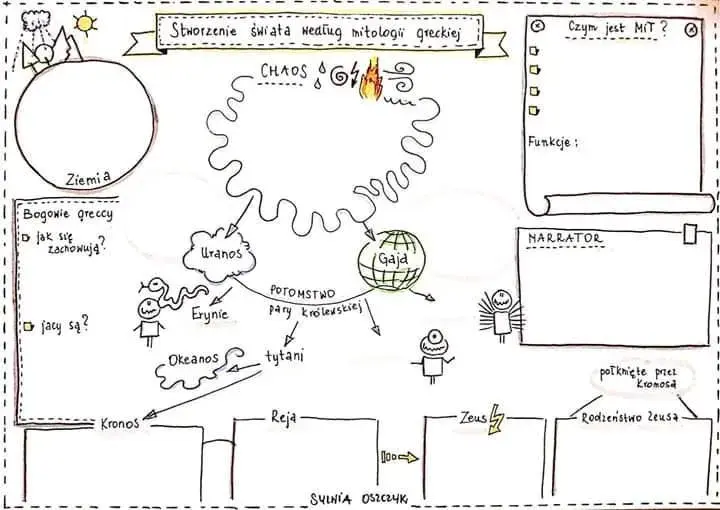 Stworzenie świata według mitologii greckiej
CHAOS
Czym jest MiT?
Funkcje:
Ziemia
Bogowie greccy
jak się
zachowują?
jacy są?
Uranos
Gaja
NARRATOR
POTOMSTWO
pary królewskiej
Erynie
Okeanos
tytani
połknięte przez
Kronosa
Kronos
Reja
Zeus
Rodzeństwo Zeusa
SYLWIA OSZCZYK